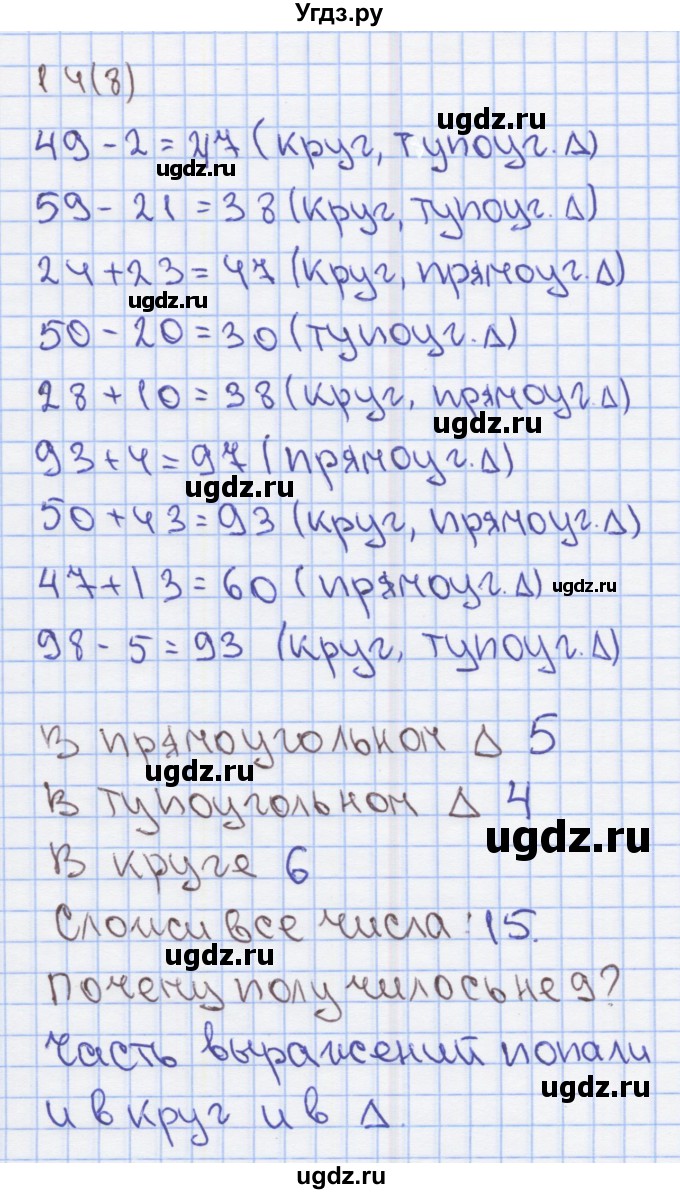 Угдз.ру
14(8)
ugdz.ru
49-2=47 (круг, тупоуг.Δ)
ugdz.ru
59-21=38 (круг, тупоуг.Δ)
24+23=47 (круг, прямоуг.Δ)
ugdz.ru
50-20=30 (тупоуг.Δ)
28+10=38 (круг, прямоуг.Δ)
ugdz.ru
93+4=97 (прямоуг.Δ)
ugdz.ru
50+43=93 (круг, прямоуг.Δ)
47+13=60 (прямоуг.Δ) ugdz.ru
98-5=93 (круг, тупоуг.Δ)
В прямоугольном Δ 5
ugdz.ru
В тупоугольном Δ 4
ugdz.ru
В круге 6
Сложи все числа: 15.
ugdz.ru
Почему получилось не 9?
Часть выражений попали
ugdz.ru
и в круг и в Δ.
ugdz.ru